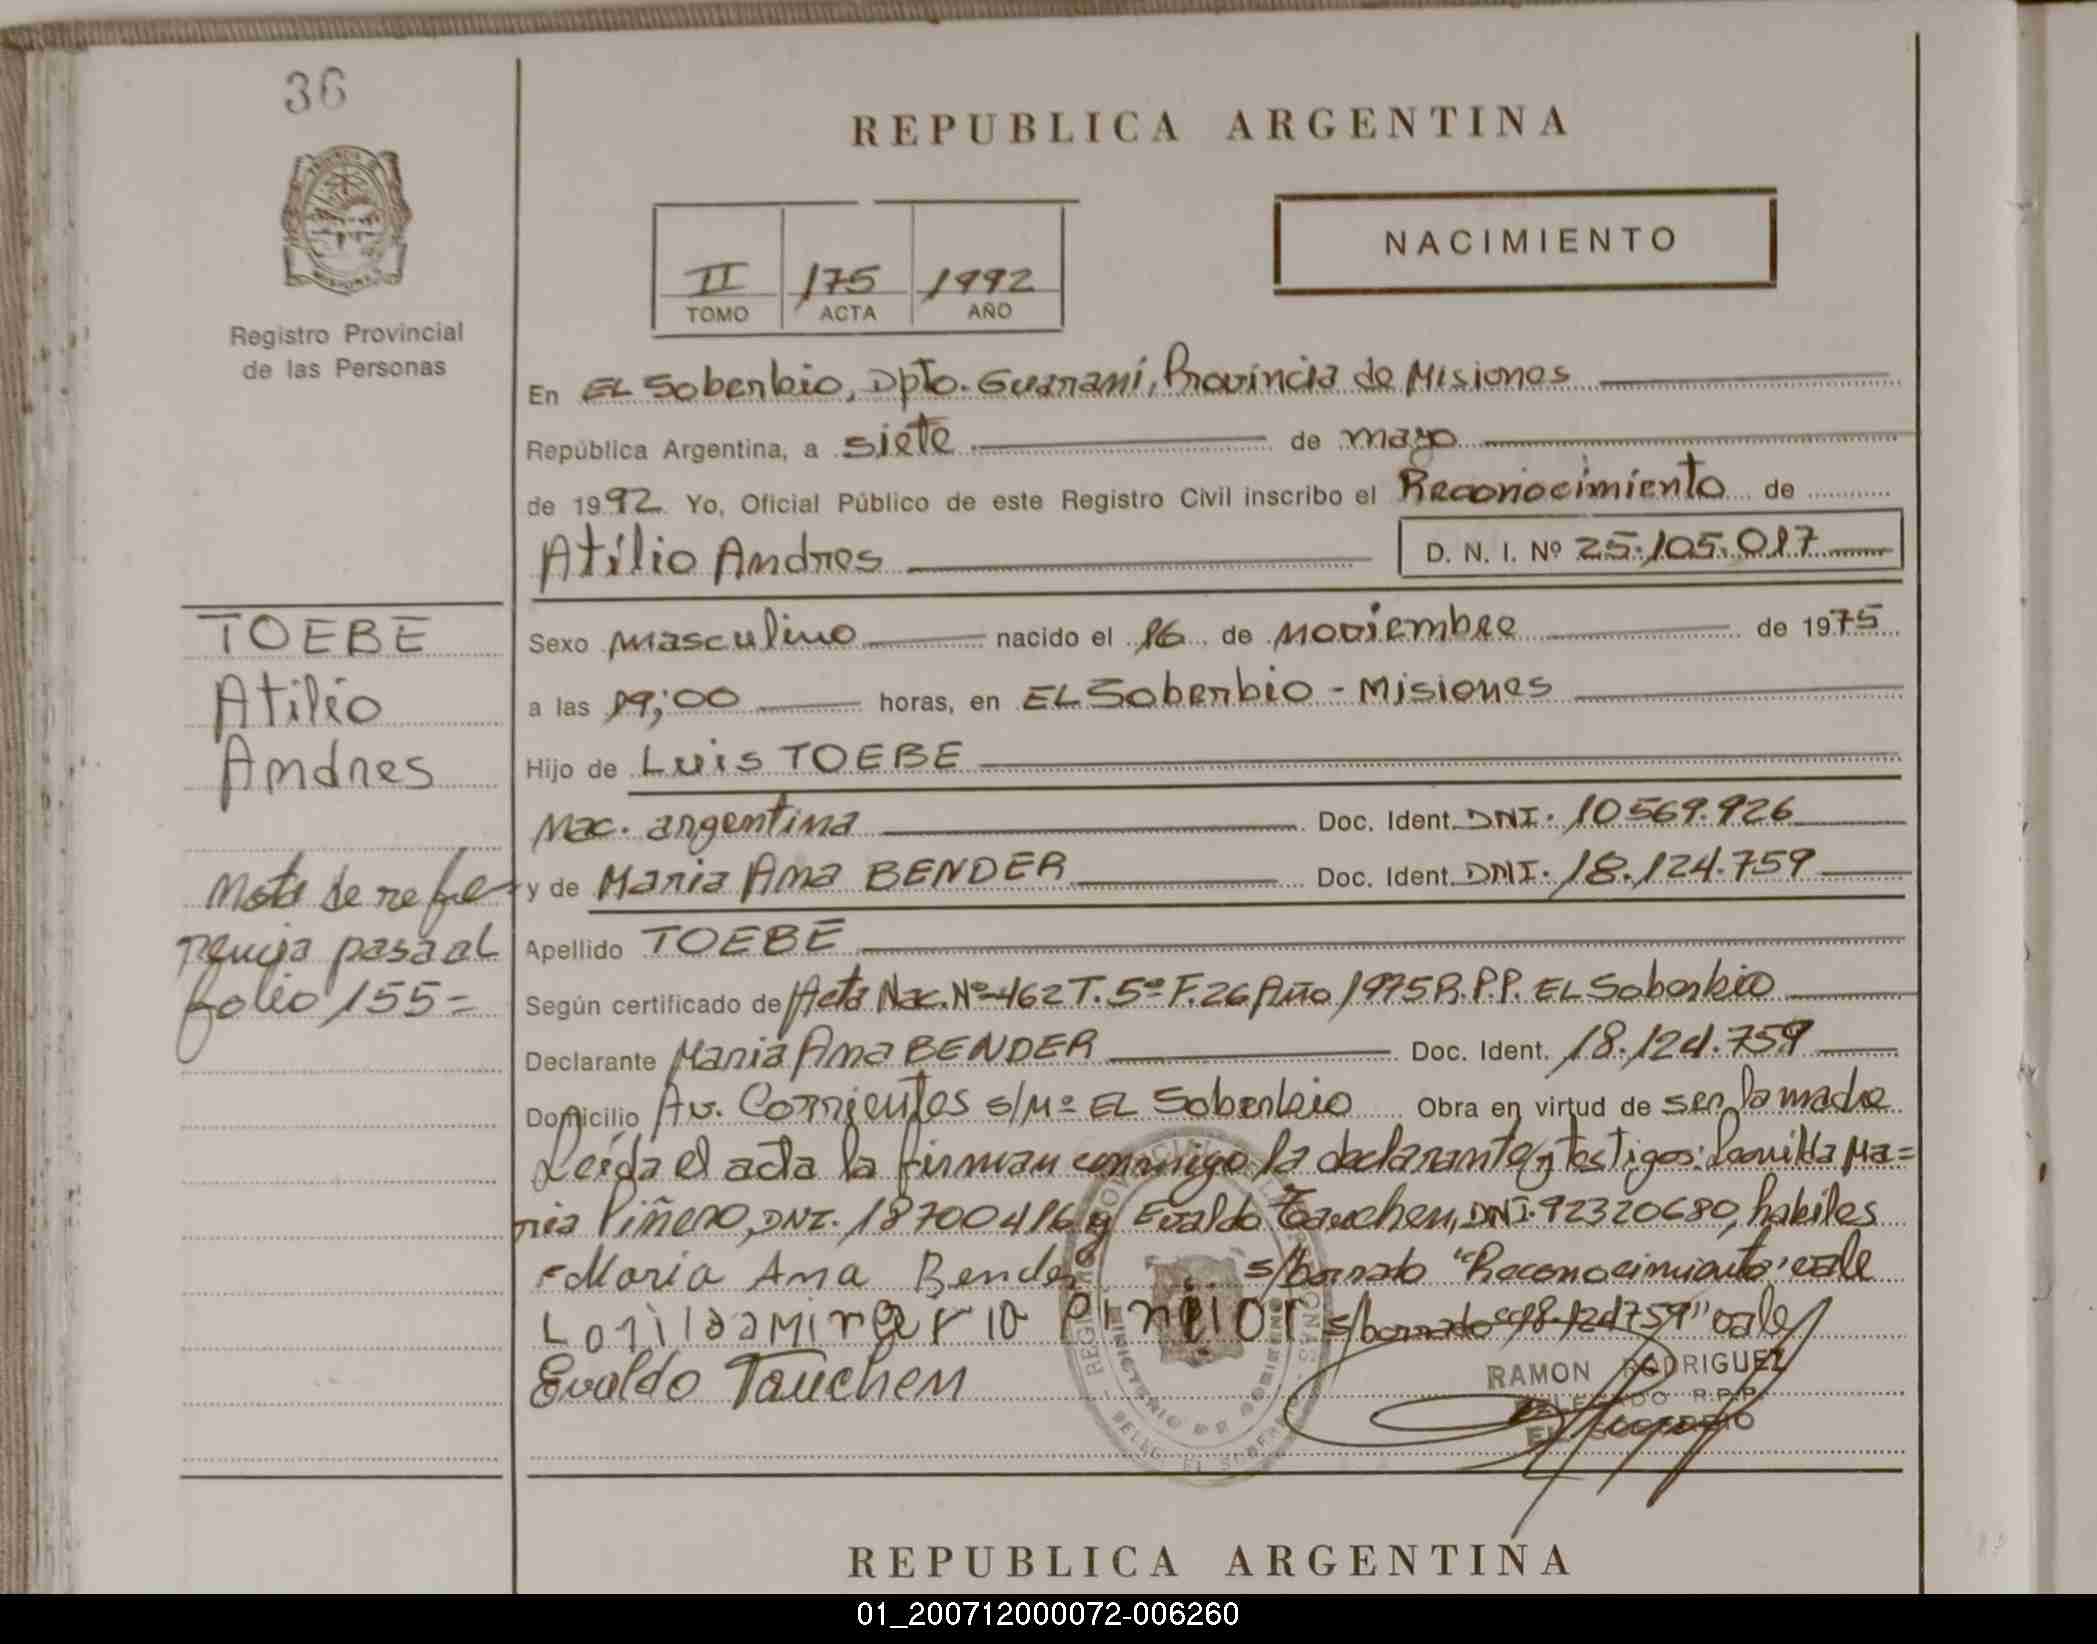 36
REPUBLICA ARGENTINA
NACIMIENTO
II 175 1992
TOMO ACTA AÑO
Registro Provincial
de las Personas
En EL Soberbio, Dpto. Guaraní, Provincia de Misiones
República Argentina, a siete de mayo
de 1992 Yo, Oficial Público de este Registro Civil inscribo el Reconocimiento de
Atilio Andres D. N. I. Nº 25.105.017
TOEBE
Atilio
Andres
Nota de refe-
rencia pasa al
folio 155=
Sexo masculino nacido el 16 de noviembre de 1975
a las 19;00 horas, en EL Soberbio - Misiones
Hijo de Luis TOEBE
Nac. argentina Doc. Ident. DNI. 10569.926
y de Maria Ana BENDER Doc. Ident. DNI. 18.124.759
Apellido TOEBE
Según certificado de Acta Nac. Nº 462 T. 5º F. 26 Año 1975 R.P.P. EL Soberbio
Declarante Maria Ana BENDER Doc. Ident. 18.124.759
Domicilio Av. Corrientes s/nº EL Soberbio Obra en virtud de ser la madre
Leída el acta la firman conmigo la declarante y testigos: Ma=
ria Piñero, DNI. 18700416 y Evaldo Tauchen, DNI. 92320680, habiles
Maria Ana Bender s/borrado "Reconocimiento" vale
s/borrado "18.124759" vale
Evaldo Tauchen
RAMON RODRIGUEZ
DELEGADO R.P.P.
EL SOBERBIO
REPUBLICA ARGENTINA
01_200712000072-006260